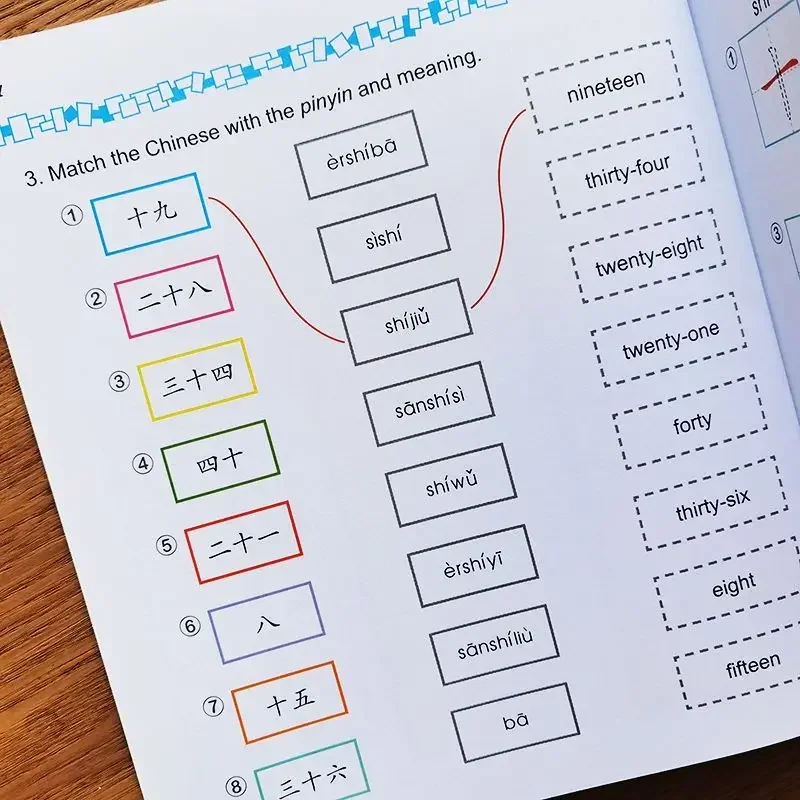 3. Match the Chinese with the pinyin and meaning.
① 十九
② 二十八
③ 三十四
④ 四十
⑤ 二十一
⑥ 八
⑦ 十五
⑧ 三十六
èrshíbā
sìshí
shíjiǔ
sānshísì
shíwǔ
èrshíyī
sānshíliù
bā
nineteen
thirty-four
twenty-eight
twenty-one
forty
thirty-six
eight
fifteen
①
③